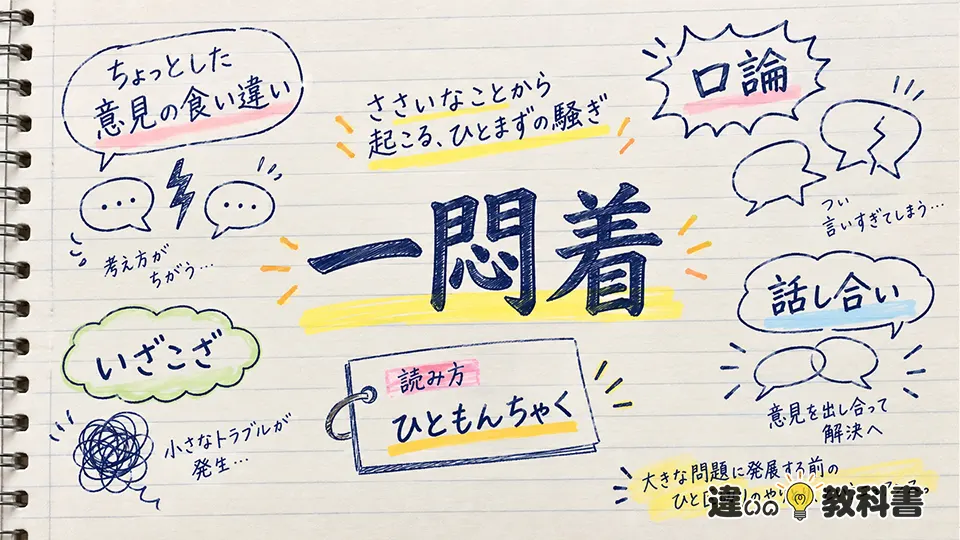 ちょっとした
意見の食い違い
考え方が
ちがう…
ささいなことから
起こる、ひとまずの騒ぎ
口論
つい
言いすぎてしまう…
一悶着
いざこざ
小さなトラブルが
発生…
読み方
ひともんちゃく
話し合い
意見を出し合って
解決へ
大きな問題に発展する前の
ひと
のやり
違いの教科書